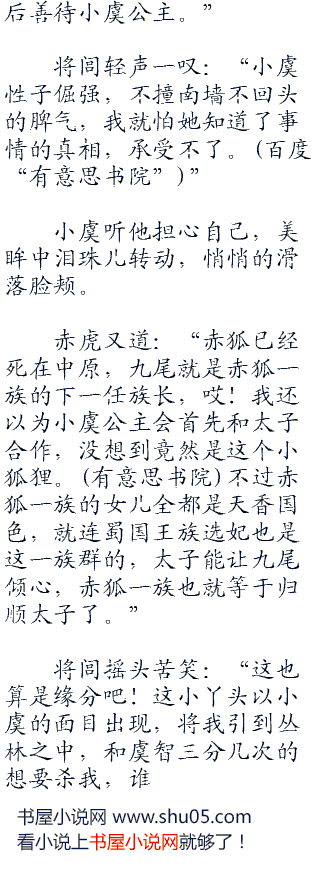 后善待小虞公主。”
将闾轻声一叹：“小虞
性子倔强，不撞南墙不回头
的脾气，我就怕她知道了事
情的真相，承受不了。(百度
“有意思书院”)”
小虞听他担心自己，美
眸中泪珠儿转动，悄悄的滑
落脸颊。
赤虎又道：“赤狐已经
死在中原，九尾就是赤狐一
族的下一任族长，哎！我还
以为小虞公主会首先和太子
合作，没想到竟然是这个小
狐狸。(有意思书院)不过赤
狐一族的女儿全都是天香国
色，就连蜀国王族选妃也是
这一族群的，太子能让九尾
倾心，赤狐一族也就等于归
顺太子了。”
将闾摇头苦笑：“这也
算是缘分吧！这小丫头以小
虞的面目出现，将我引到丛
林之中，和虞智三分几次的
想要杀我，谁
书屋小说网 www.shu05.com
看小说上书屋小说网就够了！